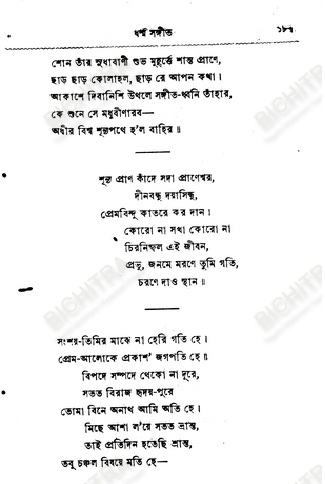 ধর্ম্ম সঙ্গীত
শোন তাঁর সুধাবাণী শুভ মুহূর্ত্তে শান্ত প্রাণে,
ছাড় ছাড় কোলাহল, ছাড় রে আপন কথা।
আকাশে দিবানিশি উথলে সঙ্গীত-ধ্বনি তাঁহার,
কে শুনে সে মধুবীণারব—
অধীর বিশ্ব শূন্যপথে হ'ল বাহির॥
শূন্য প্রাণ কাঁদে সদা প্রাণেশ্বর,
দীনবন্ধু দয়াসিন্ধু,
প্রেমবিন্দু কাতরে কর দান।
কোরো না সখা কোরো না
চিরনিষ্ফল এই জীবন,
প্রভু, জনমে মরণে তুমি গতি,
চরণে দাও স্থান॥
সংশয়-তিমির মাঝে না হেরি গতি হে।
প্রেম-আলোকে প্রকাশ' জগপতি হে॥
বিপদে সম্পদে থেকো না দূরে,
সতত বিরাজ হৃদয়-পুরে
তোমা বিনে অনাথ আমি অতি হে।
মিছে আশা ল'য়ে সতত ভ্রান্ত,
তাই প্রতিদিন হতেছি শ্রান্ত,
তবু চঞ্চল বিষয়ে মতি হে—
BICHITRA